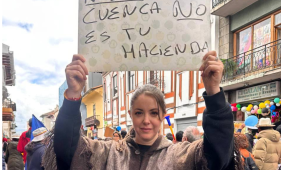 CUENCA NO
ES TU
HACIENDA